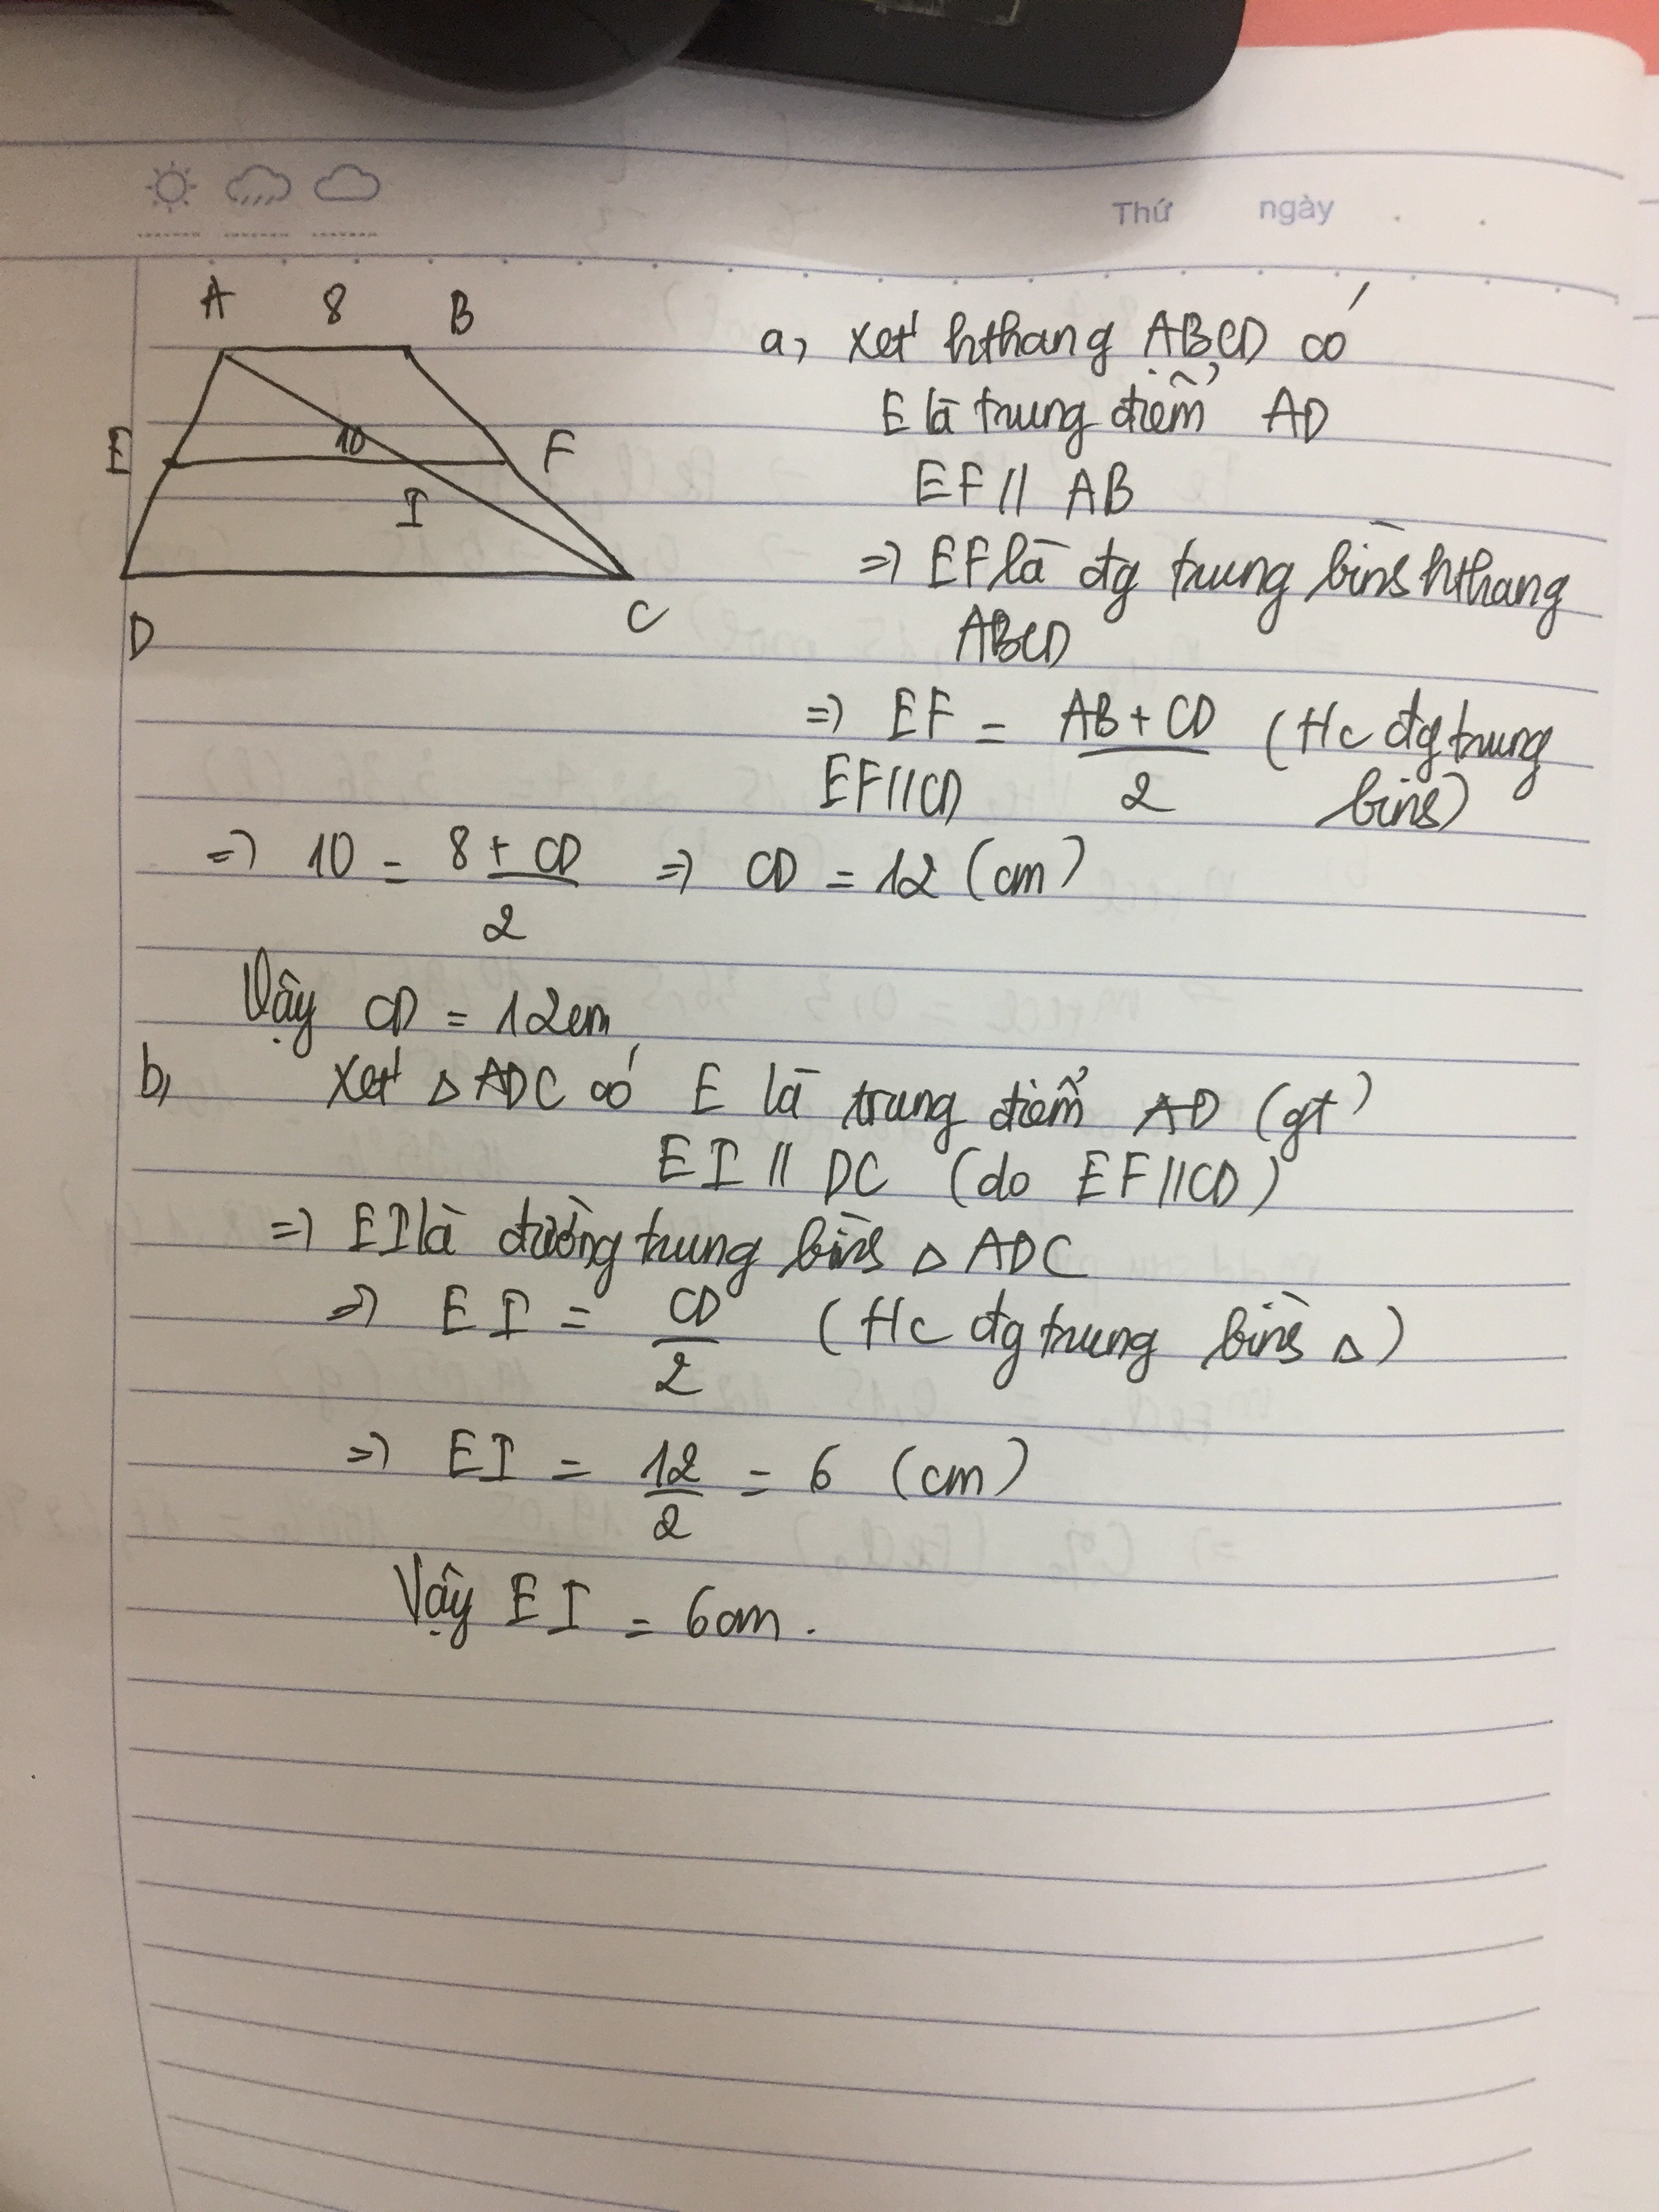 Thứ ngày
A 8 B
E 10 F
I
D C
a, xét hthang ABCD có
E là trung điểm AD
EF // AB
=> EF là đg trung bình hthang
ABCD
=> EF = AB + CD / 2 (t/c đg trung
EF // CD bình)
=> 10 = 8 + CD / 2 => CD = 12 (cm)
Vậy CD = 12cm
b, xét △ ADC có E là trung điểm AD (gt)
EI // DC (do EF // CD)
=> EI là đường trung bình △ ADC
=> EI = CD / 2 (t/c đg trung bình △)
=> EI = 12 / 2 = 6 (cm)
Vậy EI = 6cm.